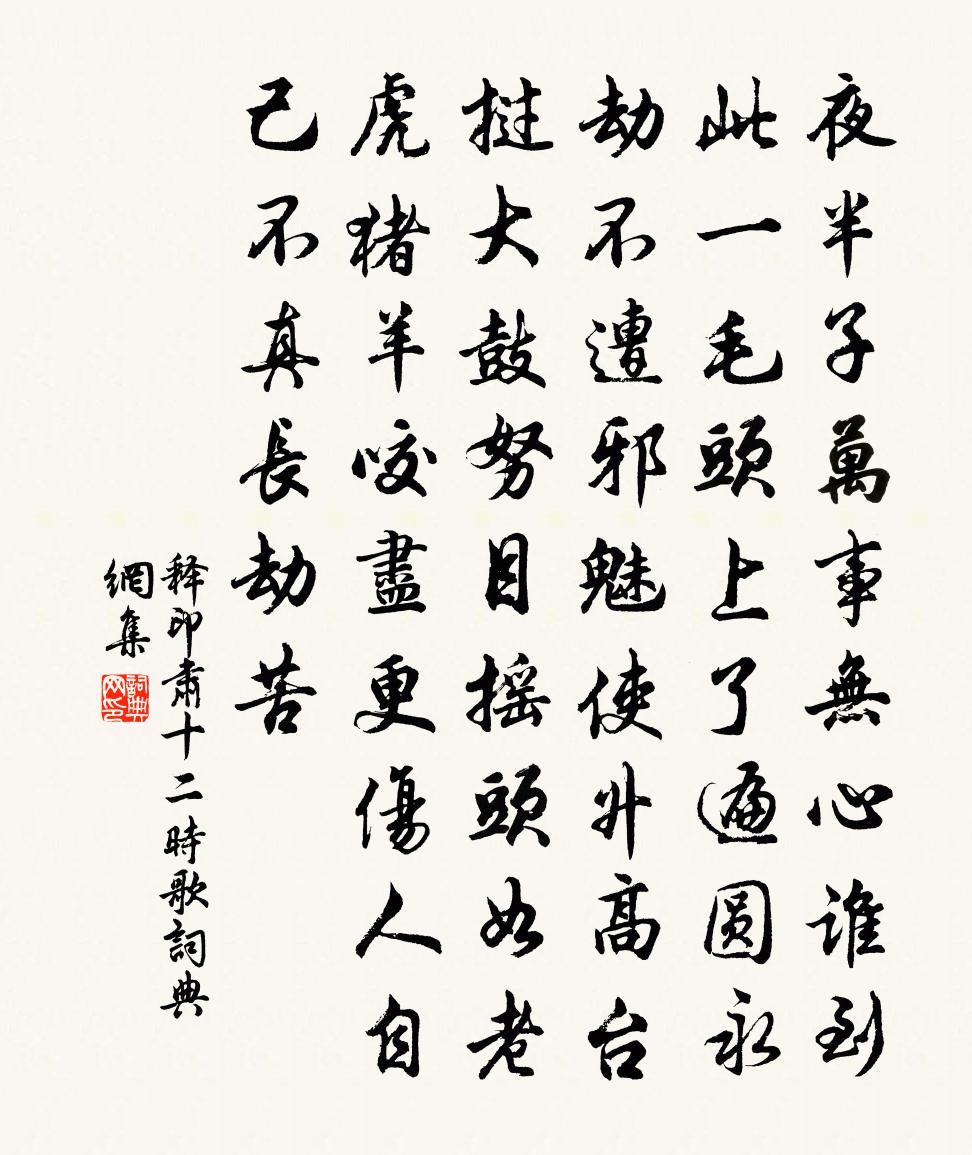 夜半子萬事無心誰到
此一毛頭上了遍圆永
劫不遭邪魅使升高台
撾大鼓努目摇頭如老
虎猪羊咬盡更傷人自
己不真長劫苦
释印肅十二時歌詞典
網集
詞典网印